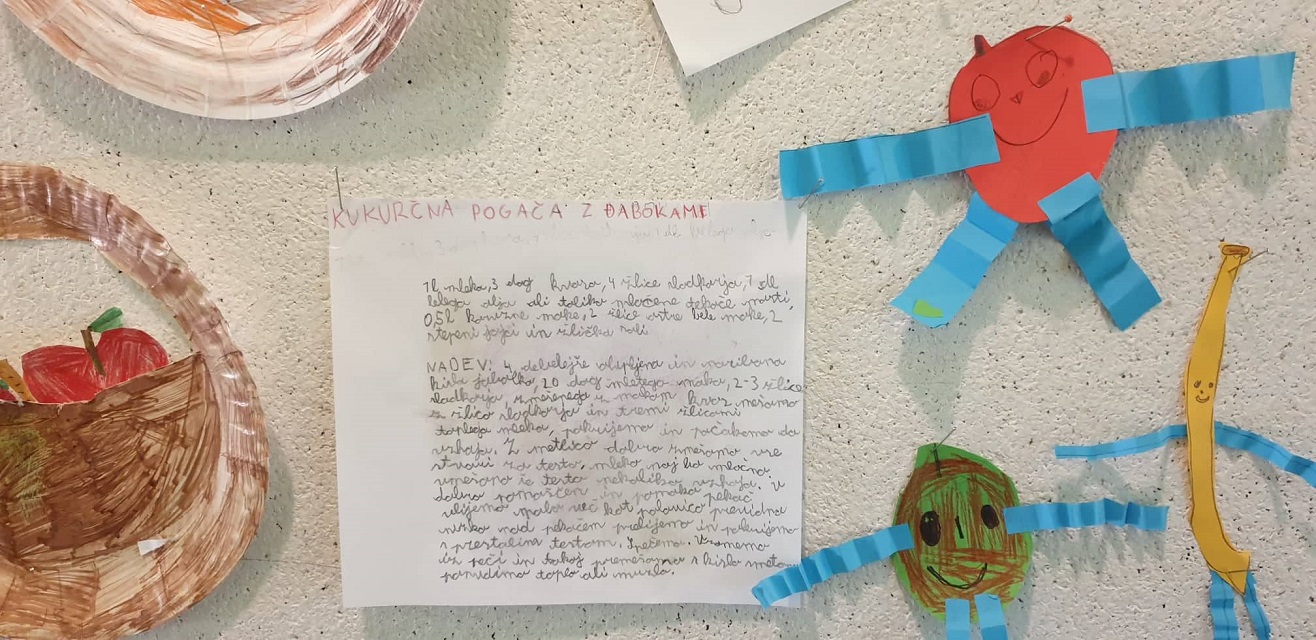 KUKURČNA POGAČA Z ĐABOKAMI
1l mleka, 3 dag kvasa, 4 žlice sladkorja, 1 dl
belega olja ali toliko mlačne tekoče masti,
0,5l koruzne moke, 2 žlice ostre bele moke, 2
stepeni jajci in žlička soli
NADEV: 4 debelejše olupljena in naribana
kisla jabolka, 20 dag mletega maka, 2-3 žlice
sladkorja, zmešanega z makom kvas mešamo
z žlico sladkorja in tremi žlicami
toplega mleka, pokrijemo in počakamo da
vzhaja. Z metlico dobro zmešamo vse
stvari za testo, mleko naj bo mlačno,
umešano je testo nekoliko vzhaja. V
dobro pomaščen in pomokan pekač
vlijemo malo več kot polovico previdno
nizko nad pekačem prelijemo in pokrijemo
s preostalim testom. Spečemo. Vzamemo
iz peči in takoj premažemo s kislo smetano
ponudimo toplo ali mrzlo.